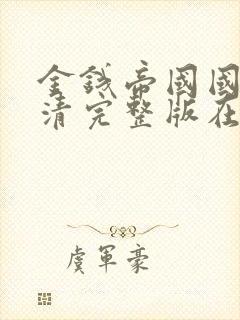 金錢帝國國
清完整版在
虞軍豪